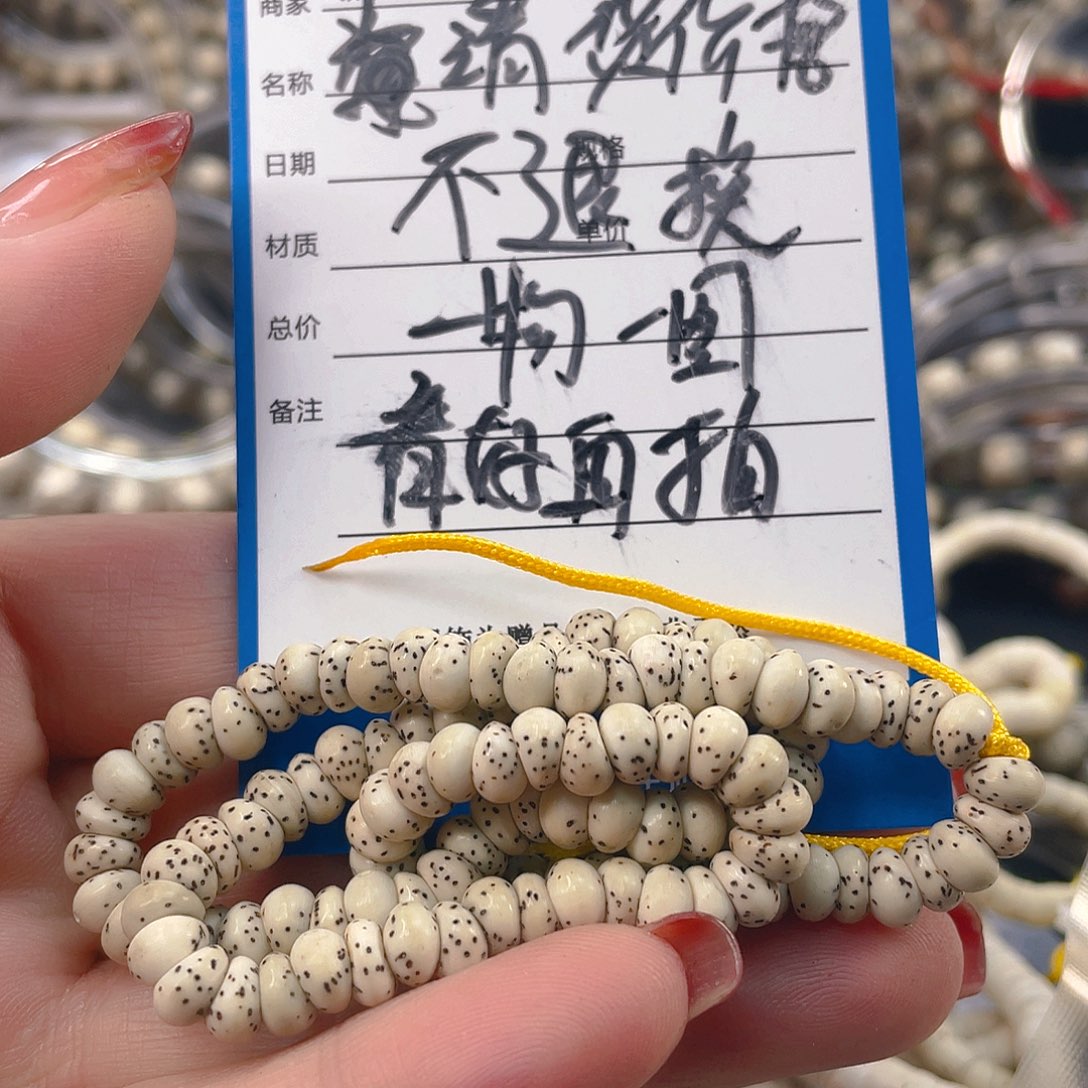 商家
名称
日期 规格
不退换
材质 单价
一物一图
总价
备注
看好再拍